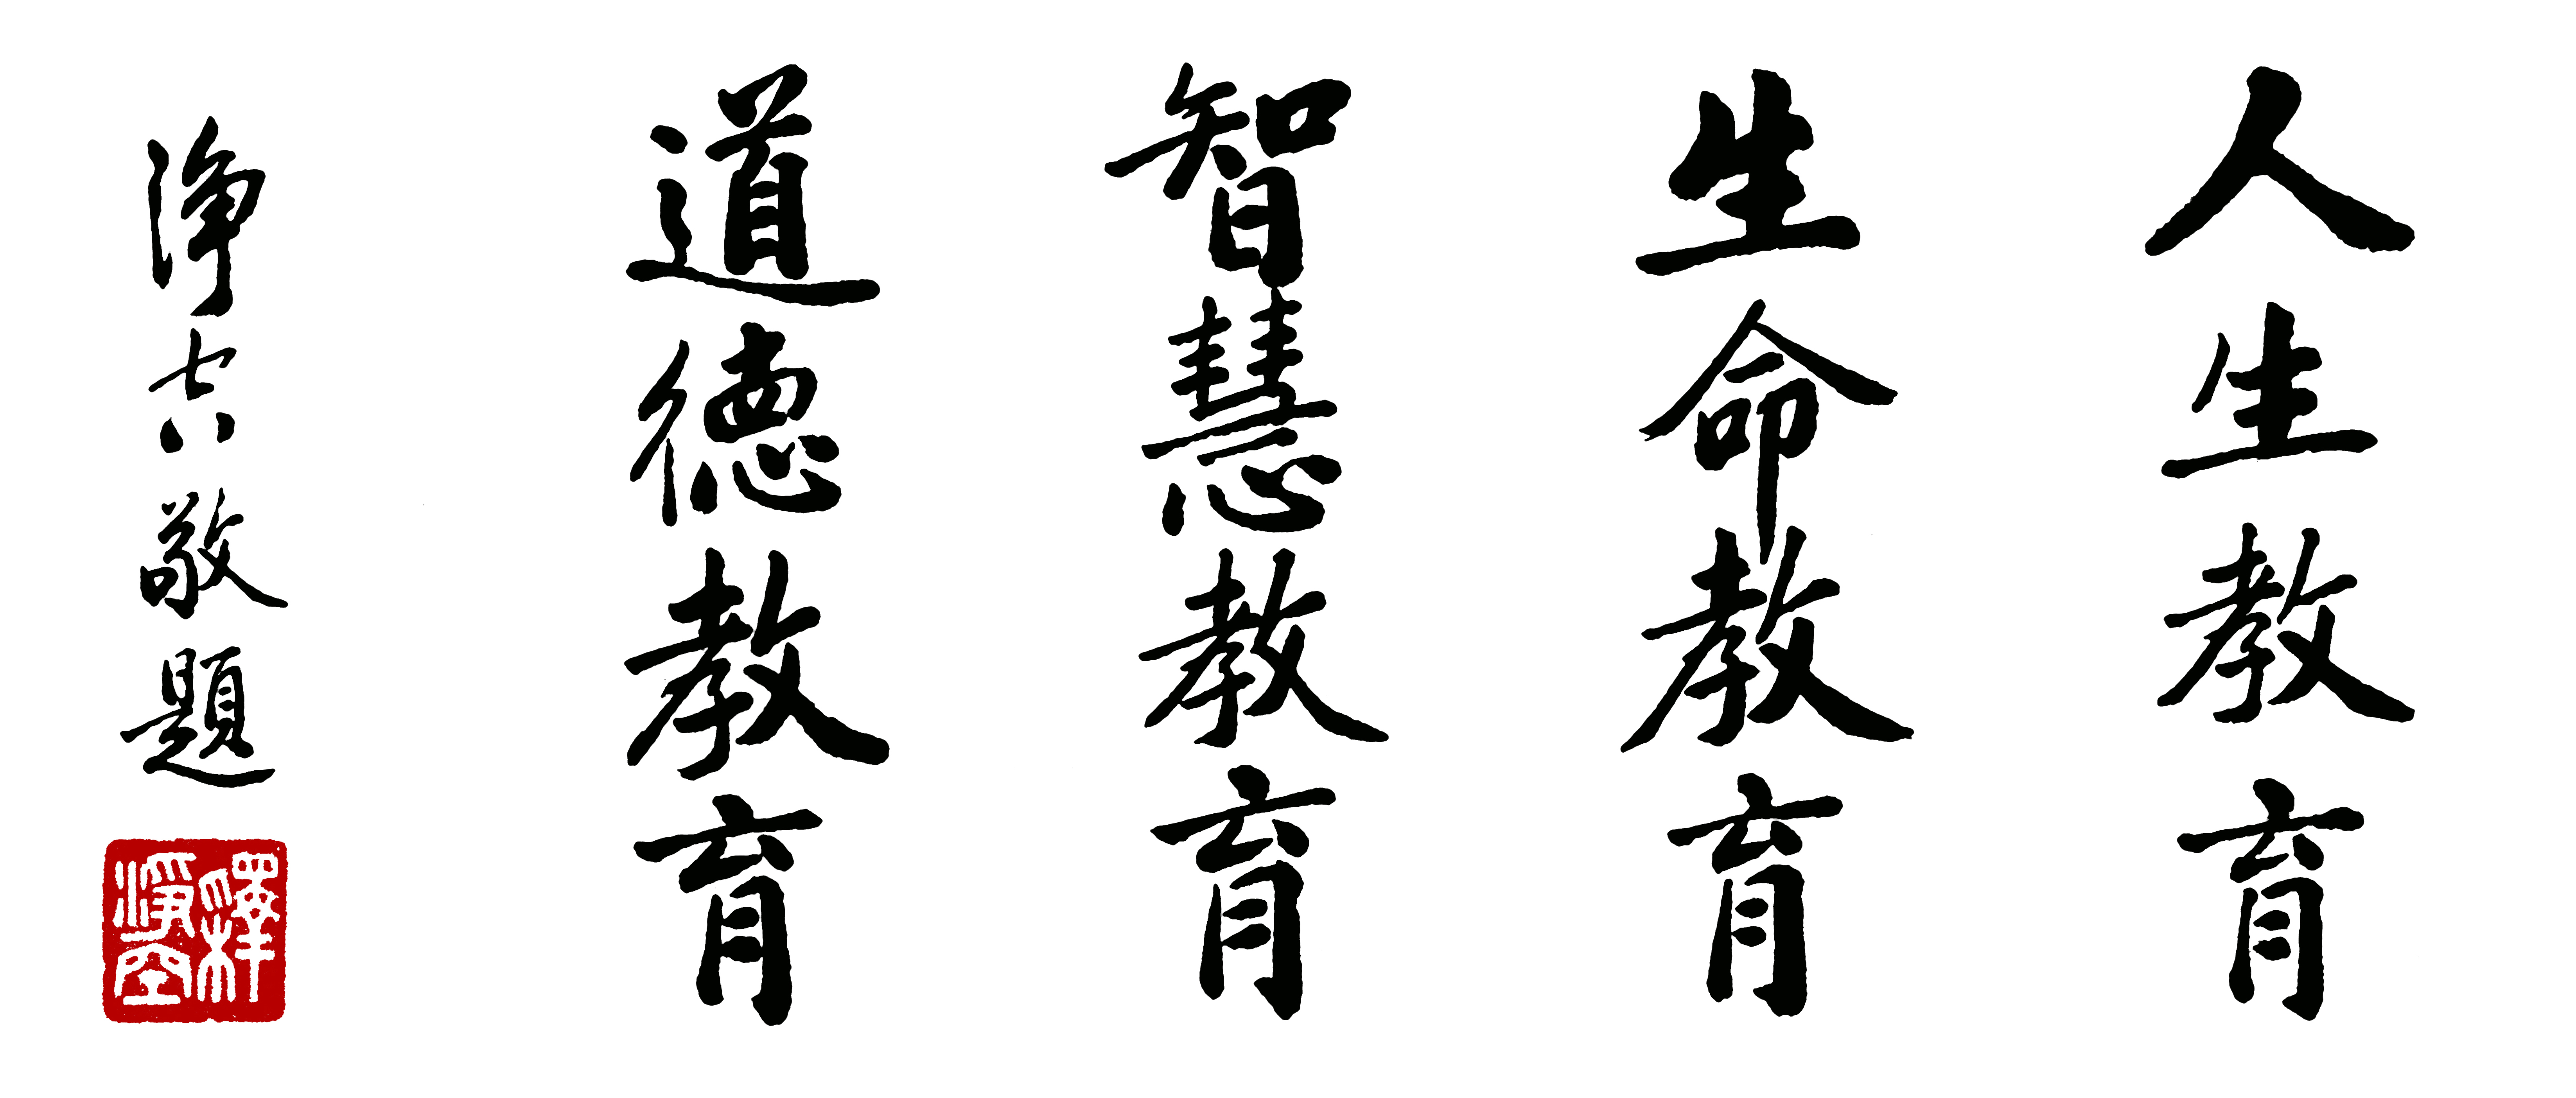 人生教育
生命教育
智慧教育
道德教育
淨空敬題
釋淨空